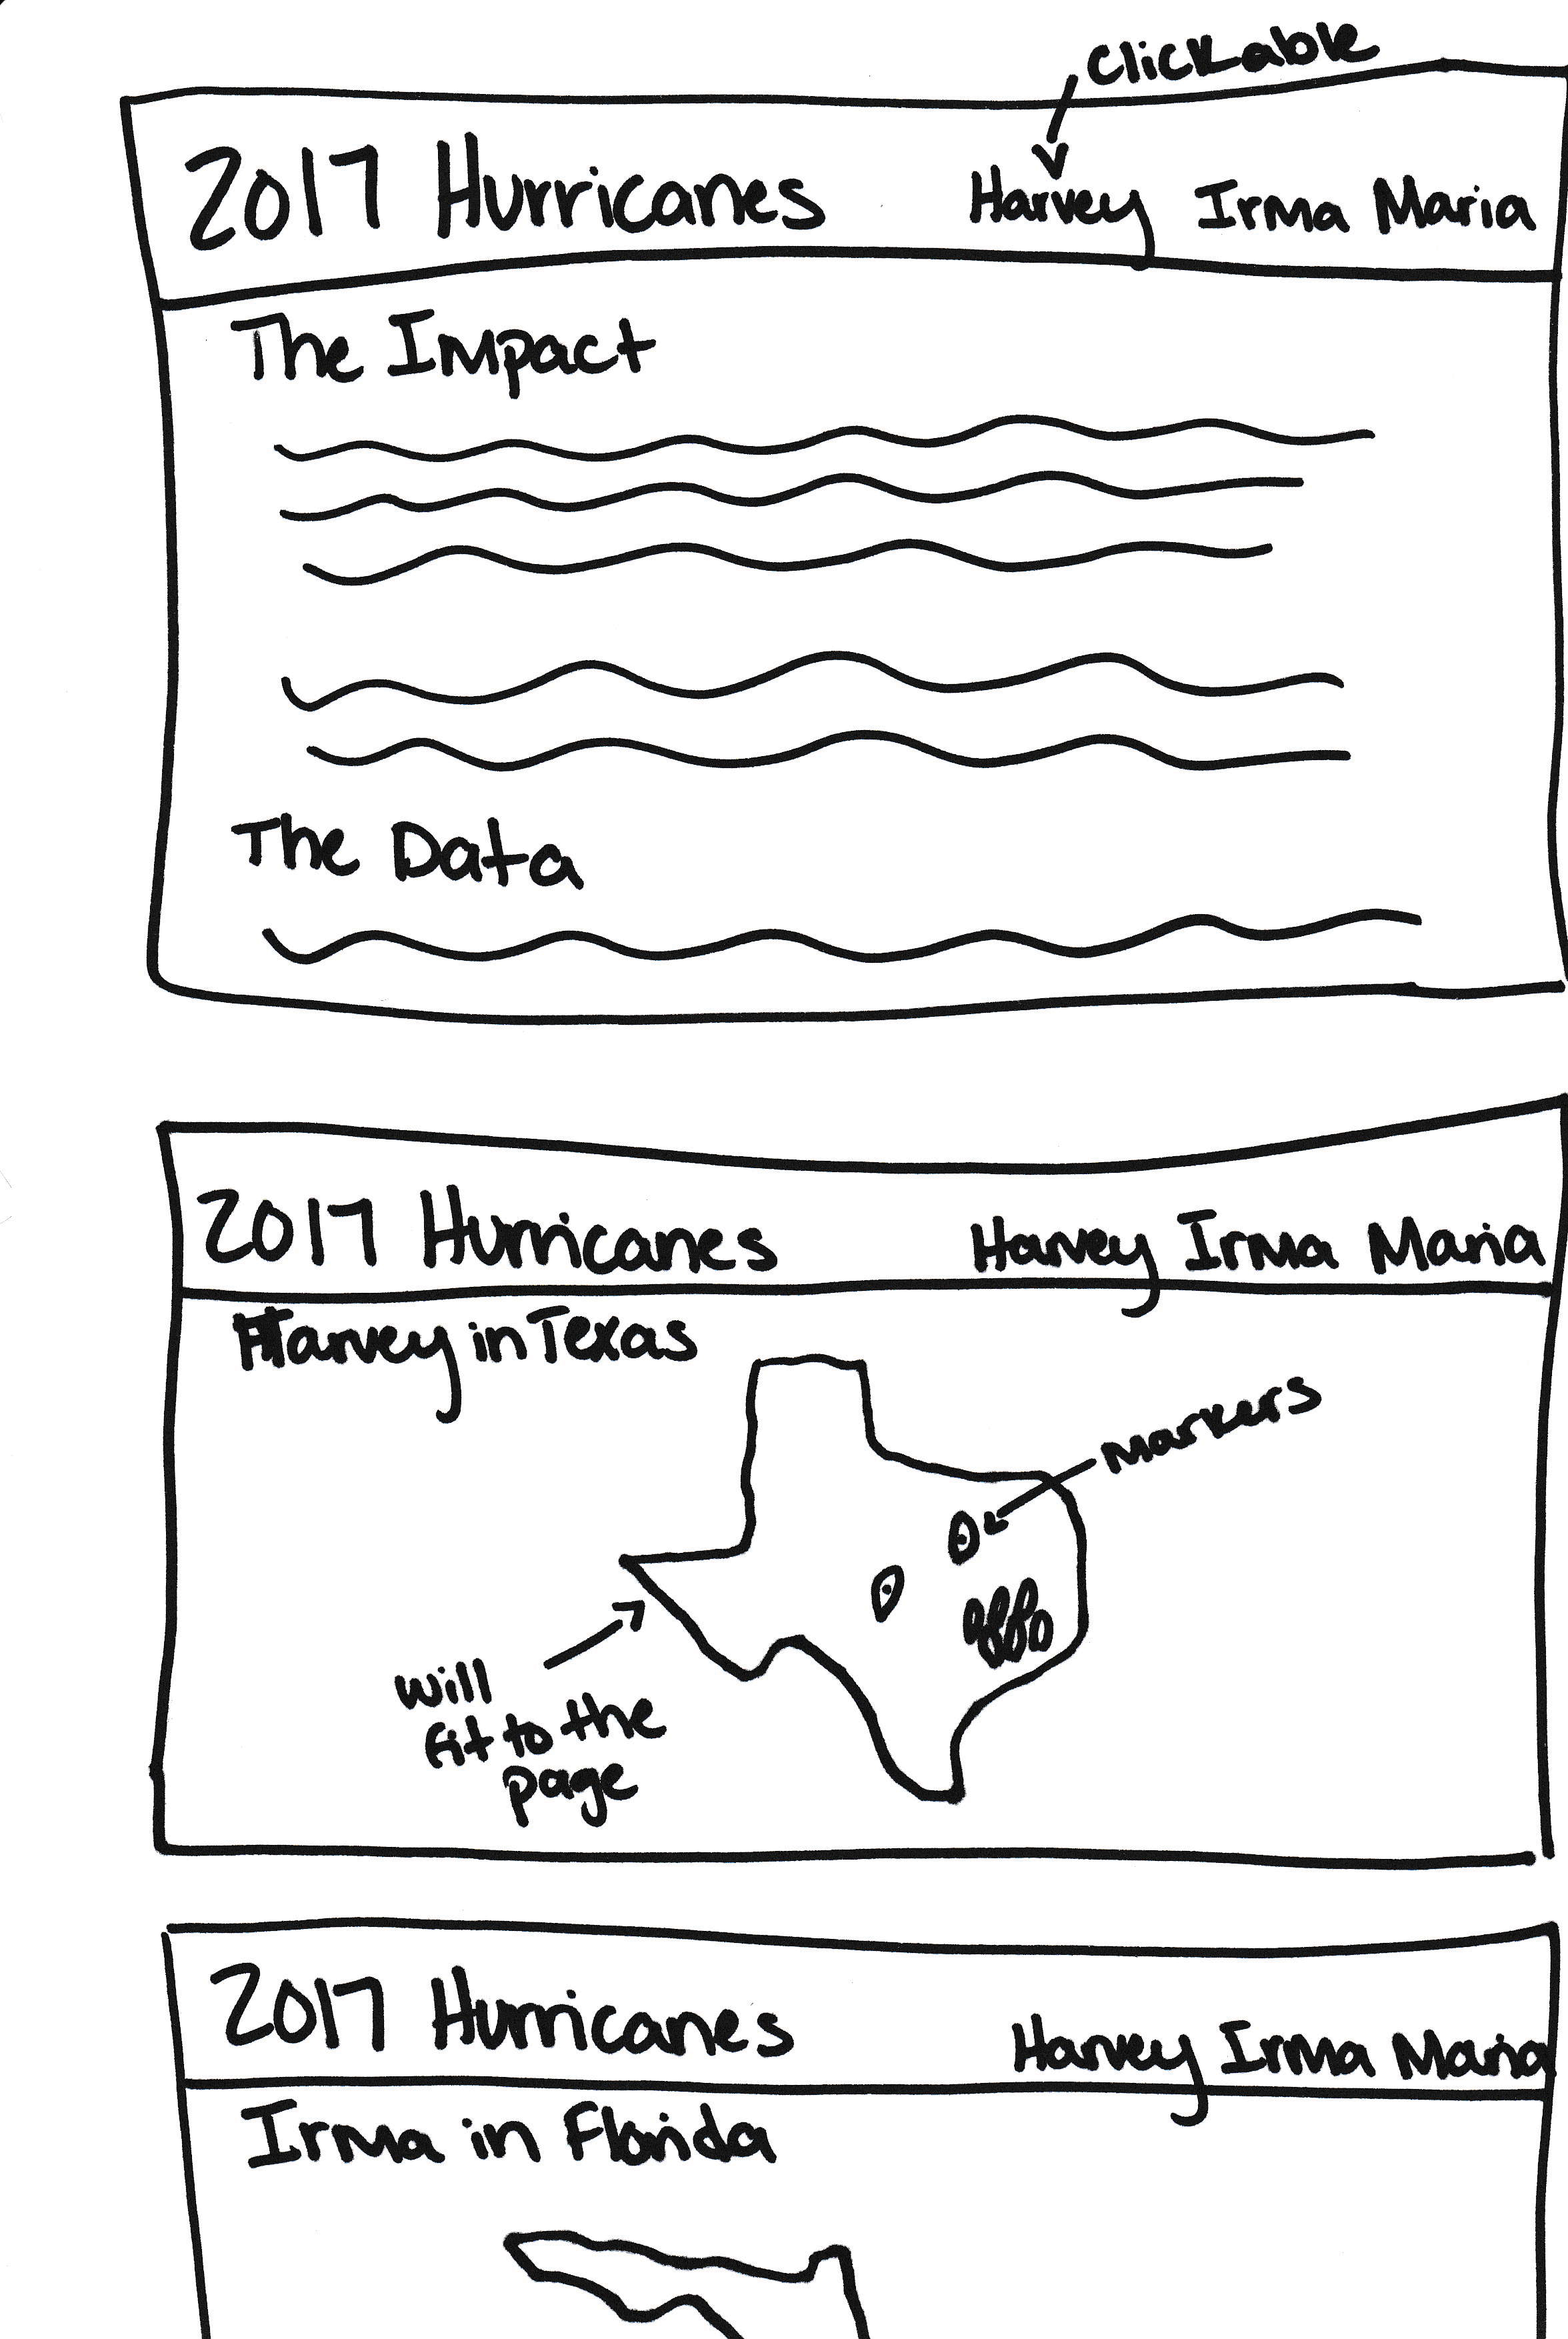 clickable
2017 Hurricanes Harvey Irma Maria
The Impact
The Data
2017 Hurricanes Harvey Irma Maria
Harvey in Texas
markers
will
fit to the
page
2017 Hurricanes Harvey Irma Maria
Irma in Florida